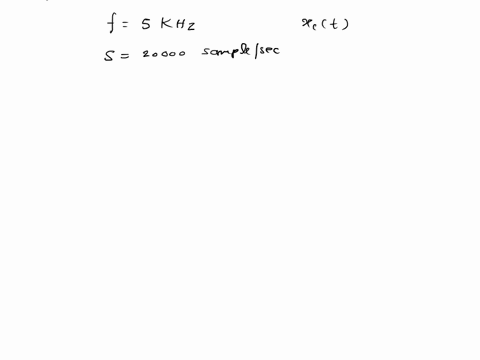 f = 5 KHZ x_c(t)
S = 20000 sample/sec